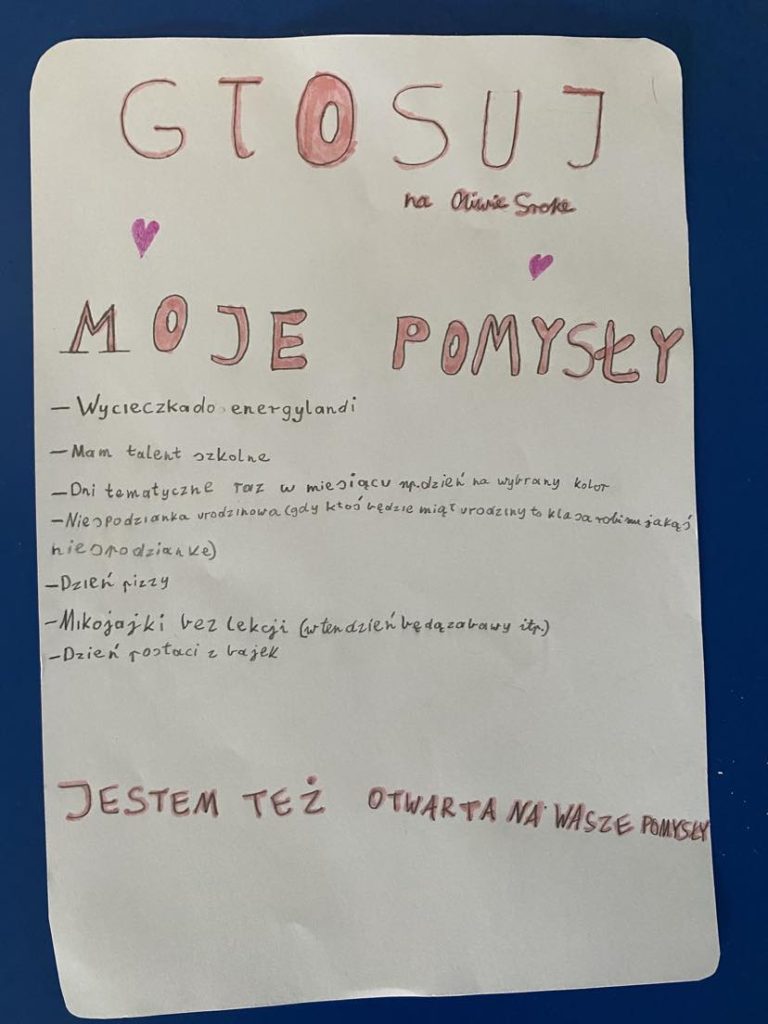 GŁOSUJ
na Oliwie Sroke
MOJE POMYSŁY
- Wycieczka do energylandi
- Mam talent szkolne
- Dni tematyczne raz w miesiącu np. dzień na wybrany kolor
- Niespodzianka urodzinowa (gdy ktoś będzie miał urodziny to klasa robi mu jakąś
niespodzianke)
- Dzień pizzy
- Mikojajki bez lekcji (w ten dzień będą zabawy itp.)
- Dzień postaci z bajek
JESTEM TEŻ OTWARTA NA WASZE POMYSŁY